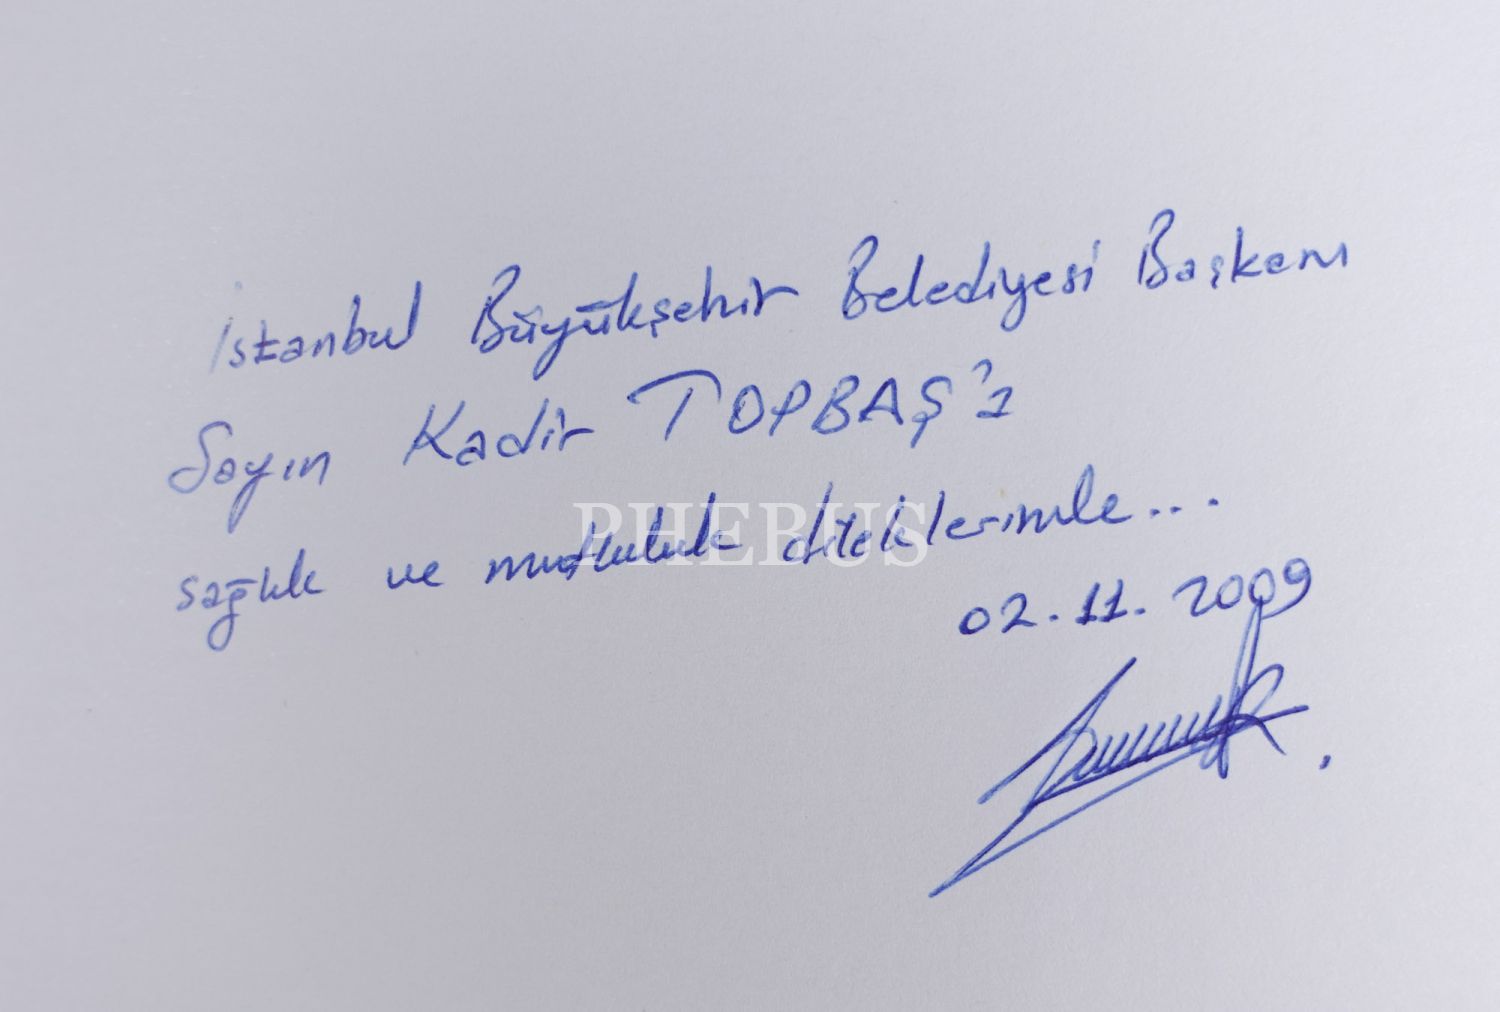 İstanbul Büyükşehir Belediyesi Başkanı
Sayın Kadir TOPBAŞ'a
sağlık ve mutluluk dileklerimle...
PHEBUS
02.11.2009